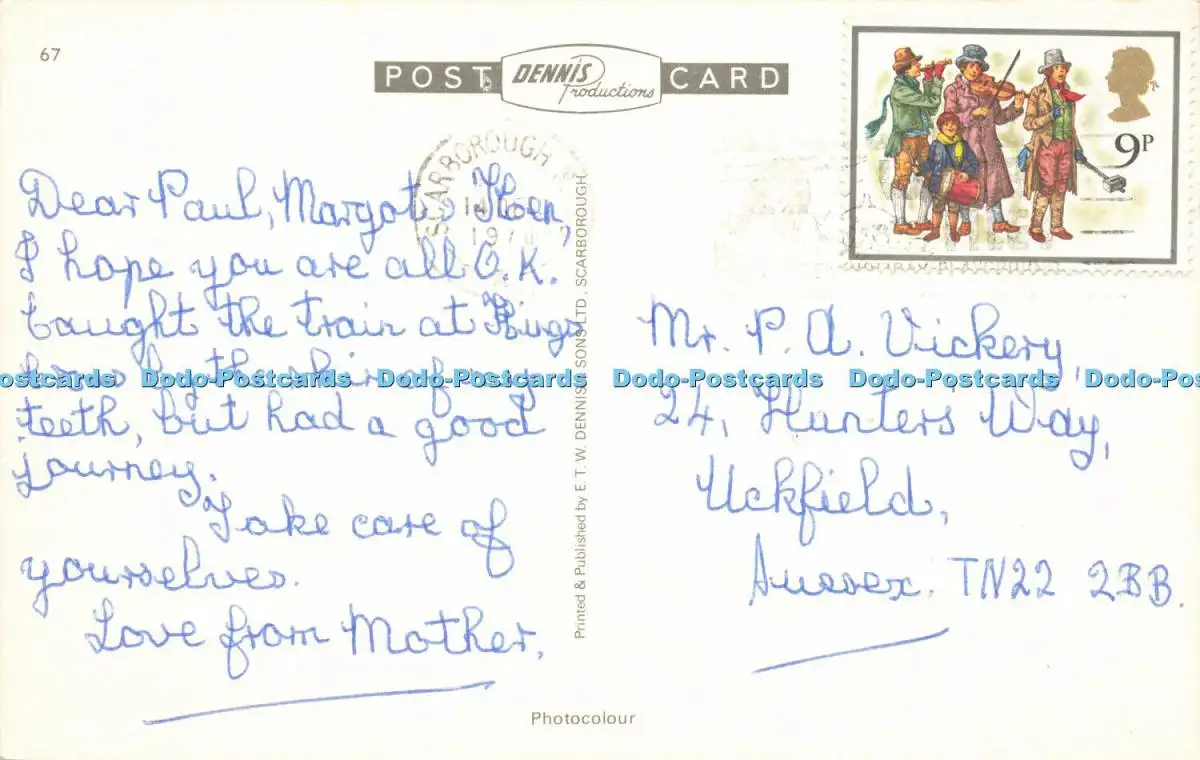 67
POST DENNIS Productions CARD
SCARBOROUGH
9P
Dear Paul, Margot &
I hope you are all O.K.
Caught the train at Kings
by the skin of my
teeth, but had a good
journey.
Take care of
yourselves.
Love from Mother.
Printed & Published by E. T. W. DENNIS & SONS LTD., SCARBOROUGH
Mr. P. A. Vickery,
24, Hunters Way,
Uckfield,
Sussex. TN22 2BB.
Dodo-Postcards Dodo-Postcards Dodo-Postcards Dodo-Postcards
Photocolour